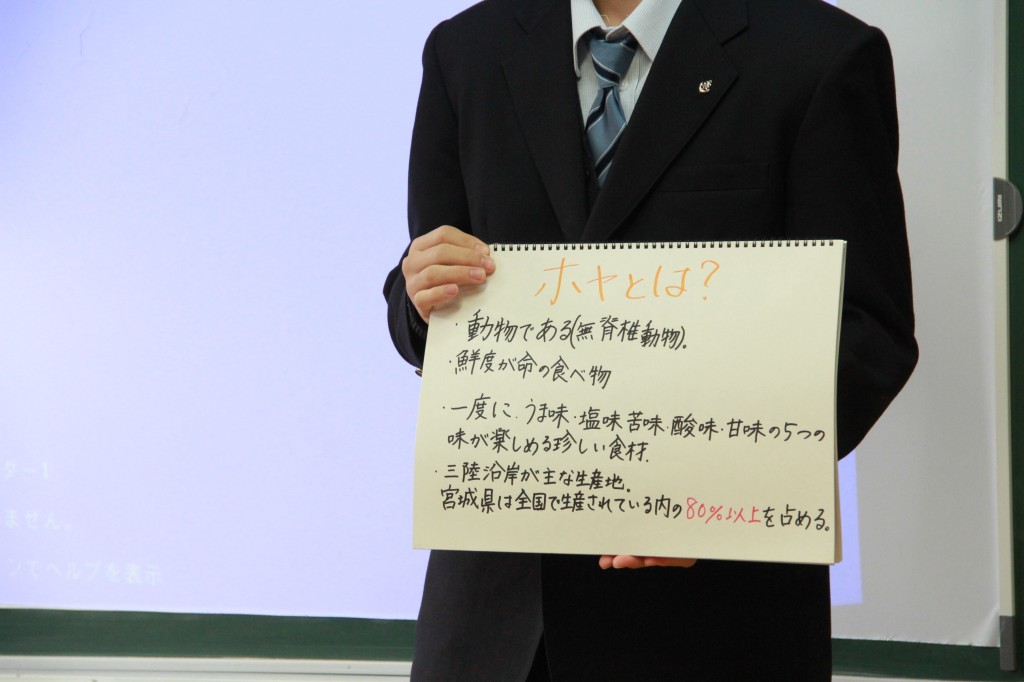 ホヤとは?
・動物である(無脊椎動物)。
・鮮度が命の食べ物
・一度に、うま味・塩味・苦味・酸味・甘味の5つの
味が楽しめる珍しい食材.
・三陸沿岸が主な生産地.
宮城県は全国で生産されている内の80%以上を占める。
ません。
ンでヘルプを表示
izumi